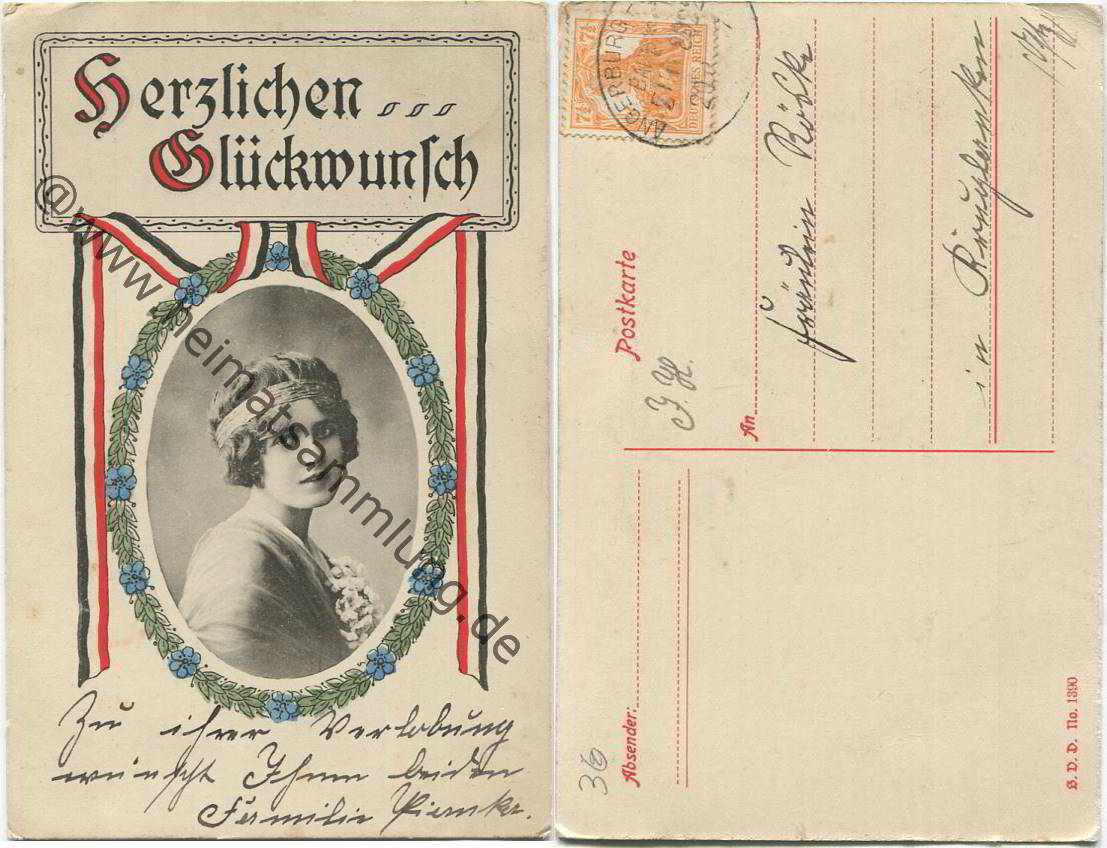 Herzlichen
Glückwunsch
@www.heimatsammlung.de
Zu ihrer Verlobung
wünscht Ihnen beiden
Familie
7½
7½
DEUTSCHES REICH
ANGERBURG
Postkarte
J. H.
An
Fräulein
in
Absender:
36
B. D. D. No. 1390